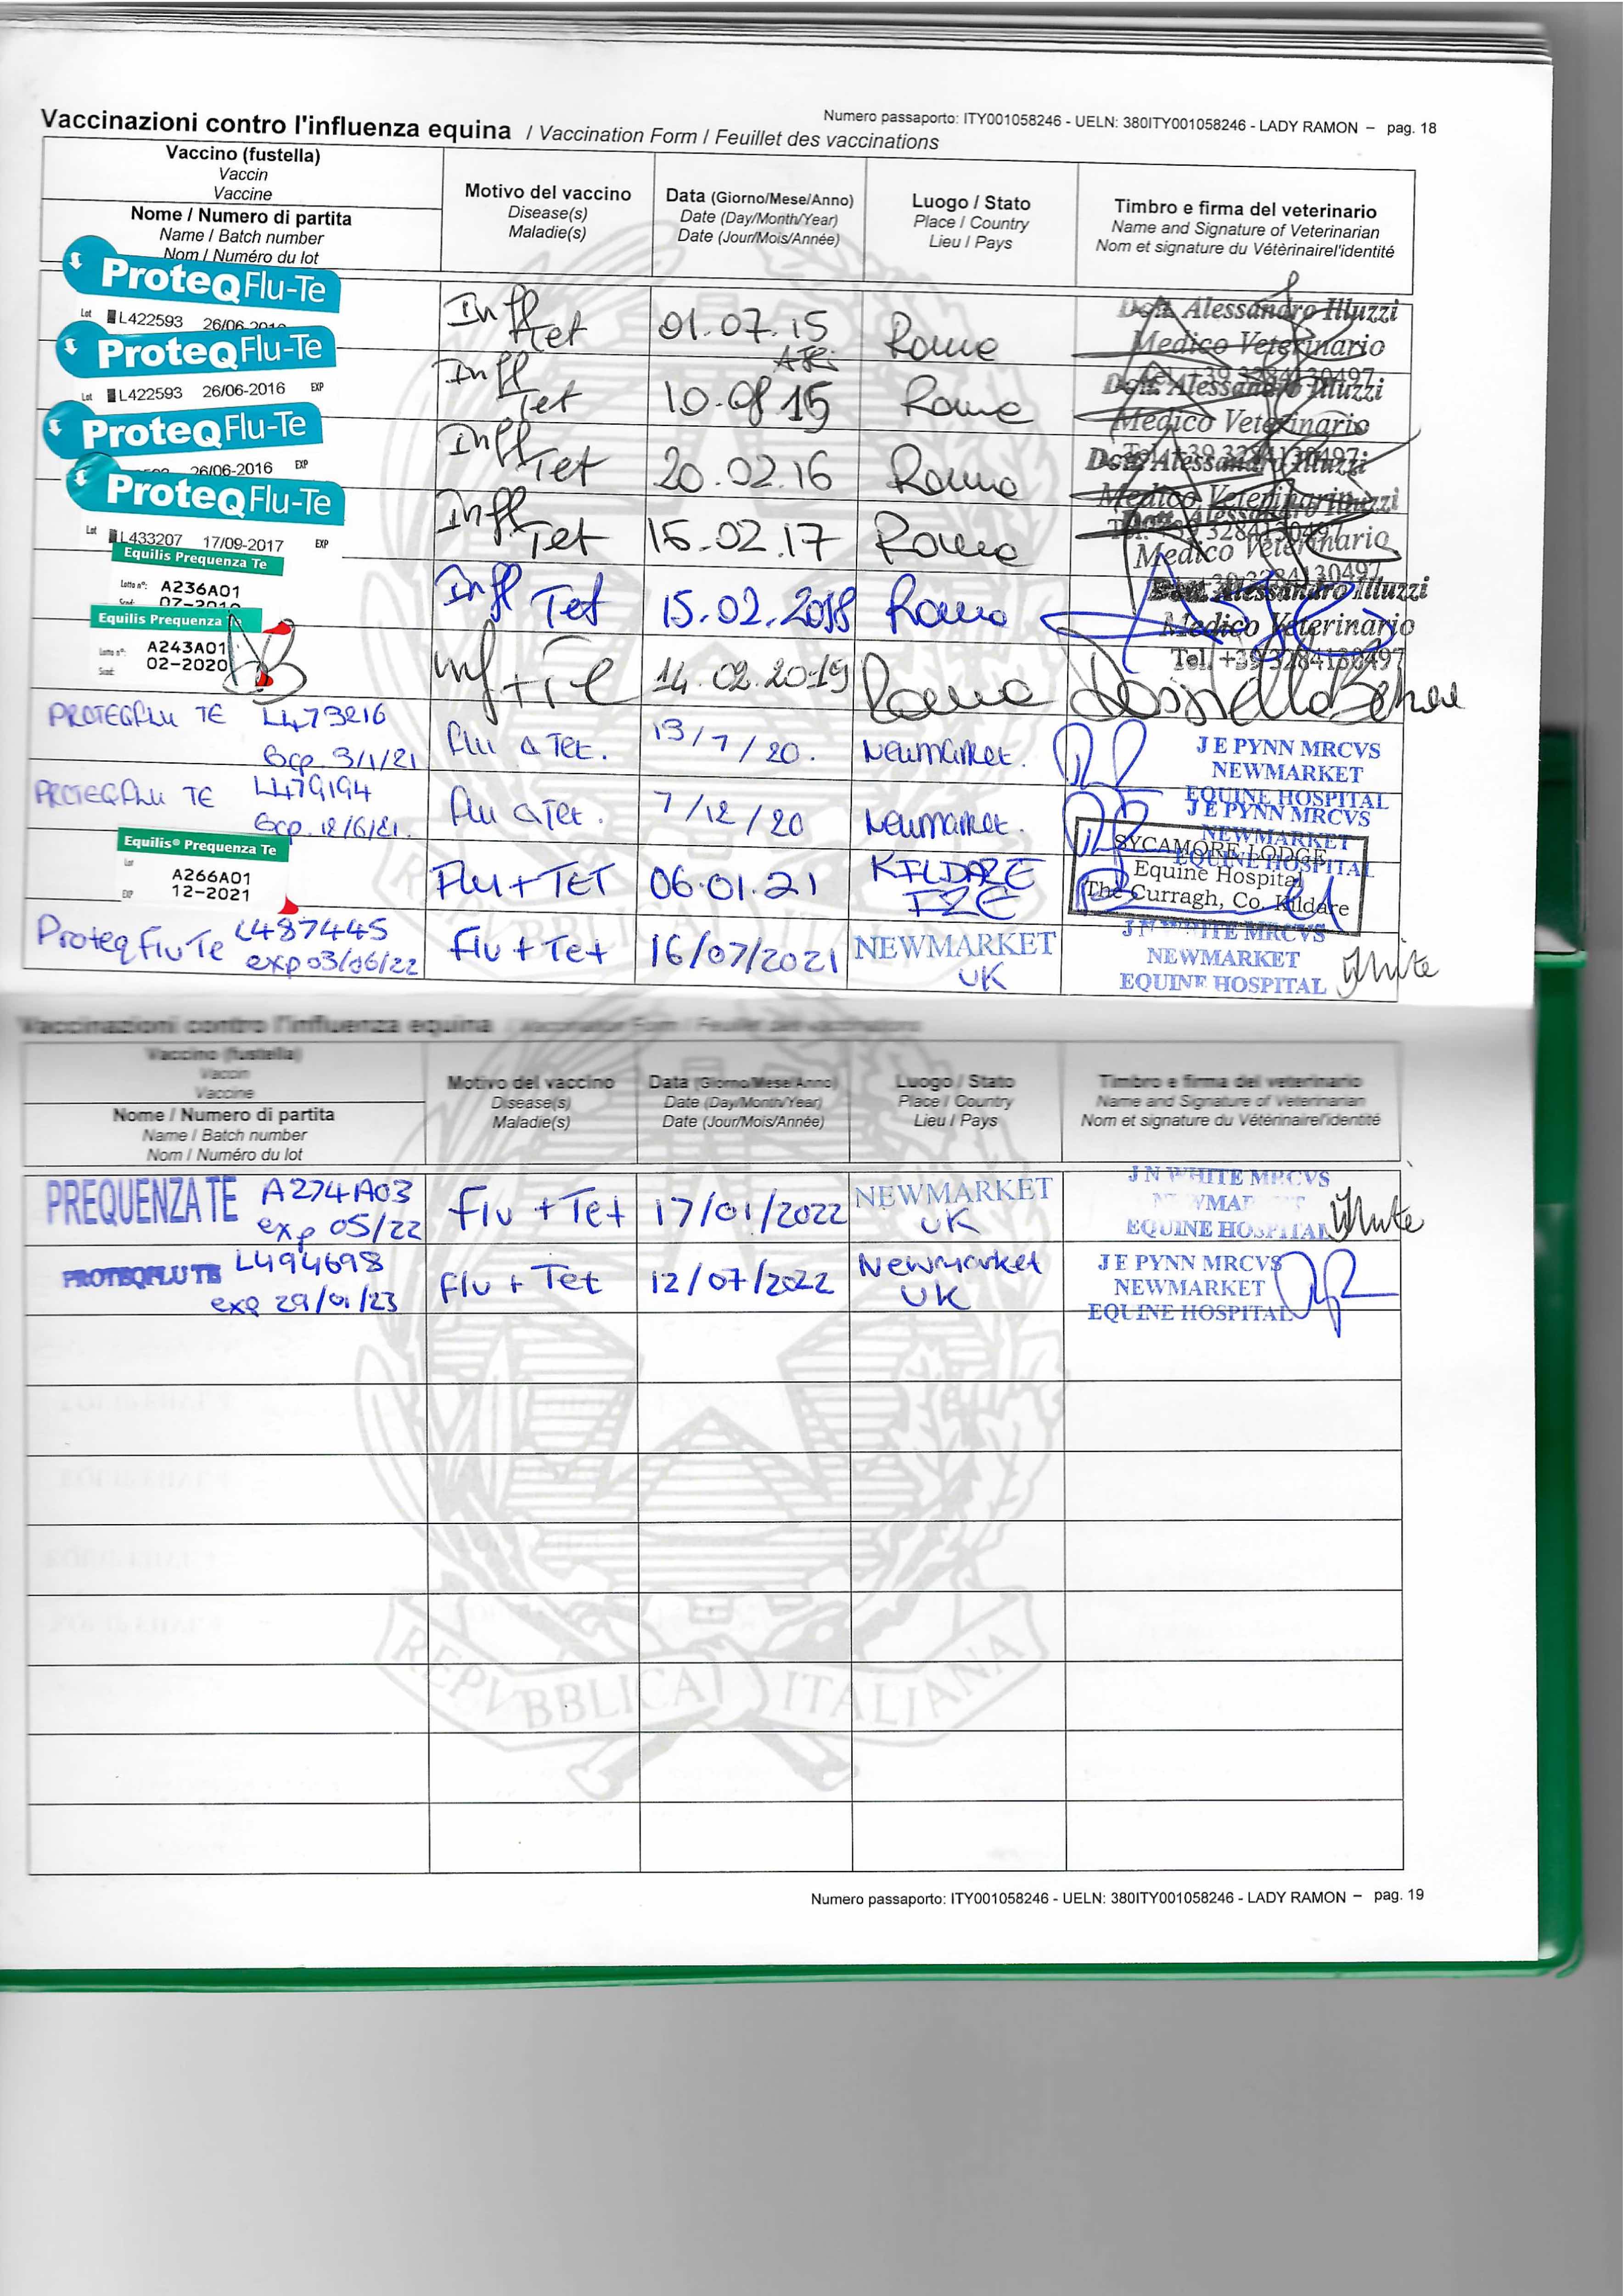 Numero passaporto: ITY001058246 - UELN: 380ITY001058246 - LADY RAMON – pag. 18
Vaccinazioni contro l'influenza equina / Vaccination Form / Feuillet des vaccinations
Vaccino (fustella)
Vaccin
Vaccine
Nome / Numero di partita
Name / Batch number
Nom / Numéro du lot
Motivo del vaccino
Disease(s)
Maladie(s)
Data (Giorno/Mese/Anno)
Date (Day/Month/Year)
Date (Jour/Mois/Année)
Luogo / Stato
Place / Country
Lieu / Pays
Timbro e firma del veterinario
Name and Signature of Veterinarian
Nom et signature du Vétèrinairel'identité
ProteQFlu-Te
Lot L422593 26/06-2016
Infl Tet
01.07.15
Roma
Dott. Alessandro Illuzzi
Medico Veterinario
Tel. +39 3284130497
ProteQFlu-Te
Lot L422593 26/06-2016 EXP
Infl Tet
10.08 15
Roma
Dott. Alessandro Illuzzi
Medico Veterinario
Tel. +39 3284130497
ProteQFlu-Te
26/06-2016 EXP
Infl Tet
20.02.16
Roma
Dott. Alessandro Illuzzi
Medico Veterinario
Tel. +39 3284130497
ProteQFlu-Te
Lot L433207 17/09-2017 EXP
Infl Tet
15.02.17
Roma
Dott. Alessandro Illuzzi
Medico Veterinario
+39 3284130497
Equilis Prequenza Te
Lotto n°: A236A01
Infl Tet
15.02.2018
Roma
Dott. Alessandro Illuzzi
Medico Veterinario
Tel. +39 3284130497
Equilis Prequenza
Lotto n°: A243A01
Scad: 02-2020
Inf + Te
14.02.2019
Roma
PROTEQFLU TE L473216
Exp. 3/1/21
Flu & Tet.
13/7/20.
Newmarket.
J E PYNN MRCVS
NEWMARKET
EQUINE HOSPITAL
PROTEQFLU TE L479194
Exp. 12/6/21.
Flu & Tet.
7/12/20
Newmarket.
J E PYNN MRCVS
NEWMARKET
EQUINE HOSPITAL
Equilis® Prequenza Te
Lot A266A01
EXP 12-2021
Flu + TET
06.01.21
KILDARE
IRE
SYCAMORE LODGE
Equine Hospital
The Curragh, Co. Kildare
Proteq Flu Te L487445
exp 03/06/22
Flu + Tet
16/07/2021
NEWMARKET
UK
J N WHITE MRCVS
NEWMARKET
EQUINE HOSPITAL
White
Vaccinazioni contro l'influenza equina / Vaccination Form / Feuillet des vaccinations
Vaccino (fustella)
Vaccin
Vaccine
Nome / Numero di partita
Name / Batch number
Nom / Numéro du lot
Motivo del vaccino
Disease(s)
Maladie(s)
Data (Giorno/Mese/Anno)
Date (Day/Month/Year)
Date (Jour/Mois/Année)
Luogo / Stato
Place / Country
Lieu / Pays
Timbro e firma del veterinario
Name and Signature of Veterinarian
Nom et signature du Vétèrinairel'identité
PREQUENZA TE A274A03
exp 05/22
Flu + Tet
17/01/2022
NEWMARKET
UK
J N WHITE MRCVS
NEWMARKET
EQUINE HOSPITAL
White
PROTEQFLU TE L494698
exp 29/01/23
Flu + Tet
12/07/2022
Newmarket
UK
J E PYNN MRCVS
NEWMARKET
EQUINE HOSPITAL
REPVBBLICA ITALIANA
Numero passaporto: ITY001058246 - UELN: 380ITY001058246 - LADY RAMON – pag. 19